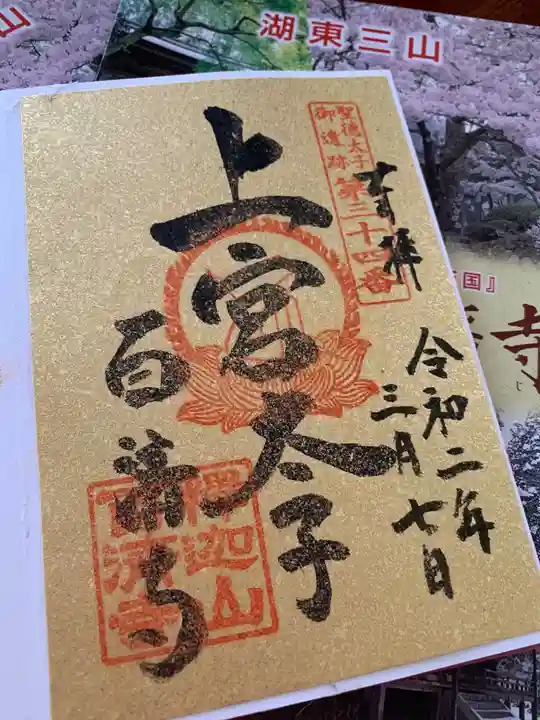 湖東三山
奉拝
聖徳太子
御遺跡
第三十四番
令和二年
三月七日
上宮太子
百済寺
釈迦山
百済寺
国』
寺